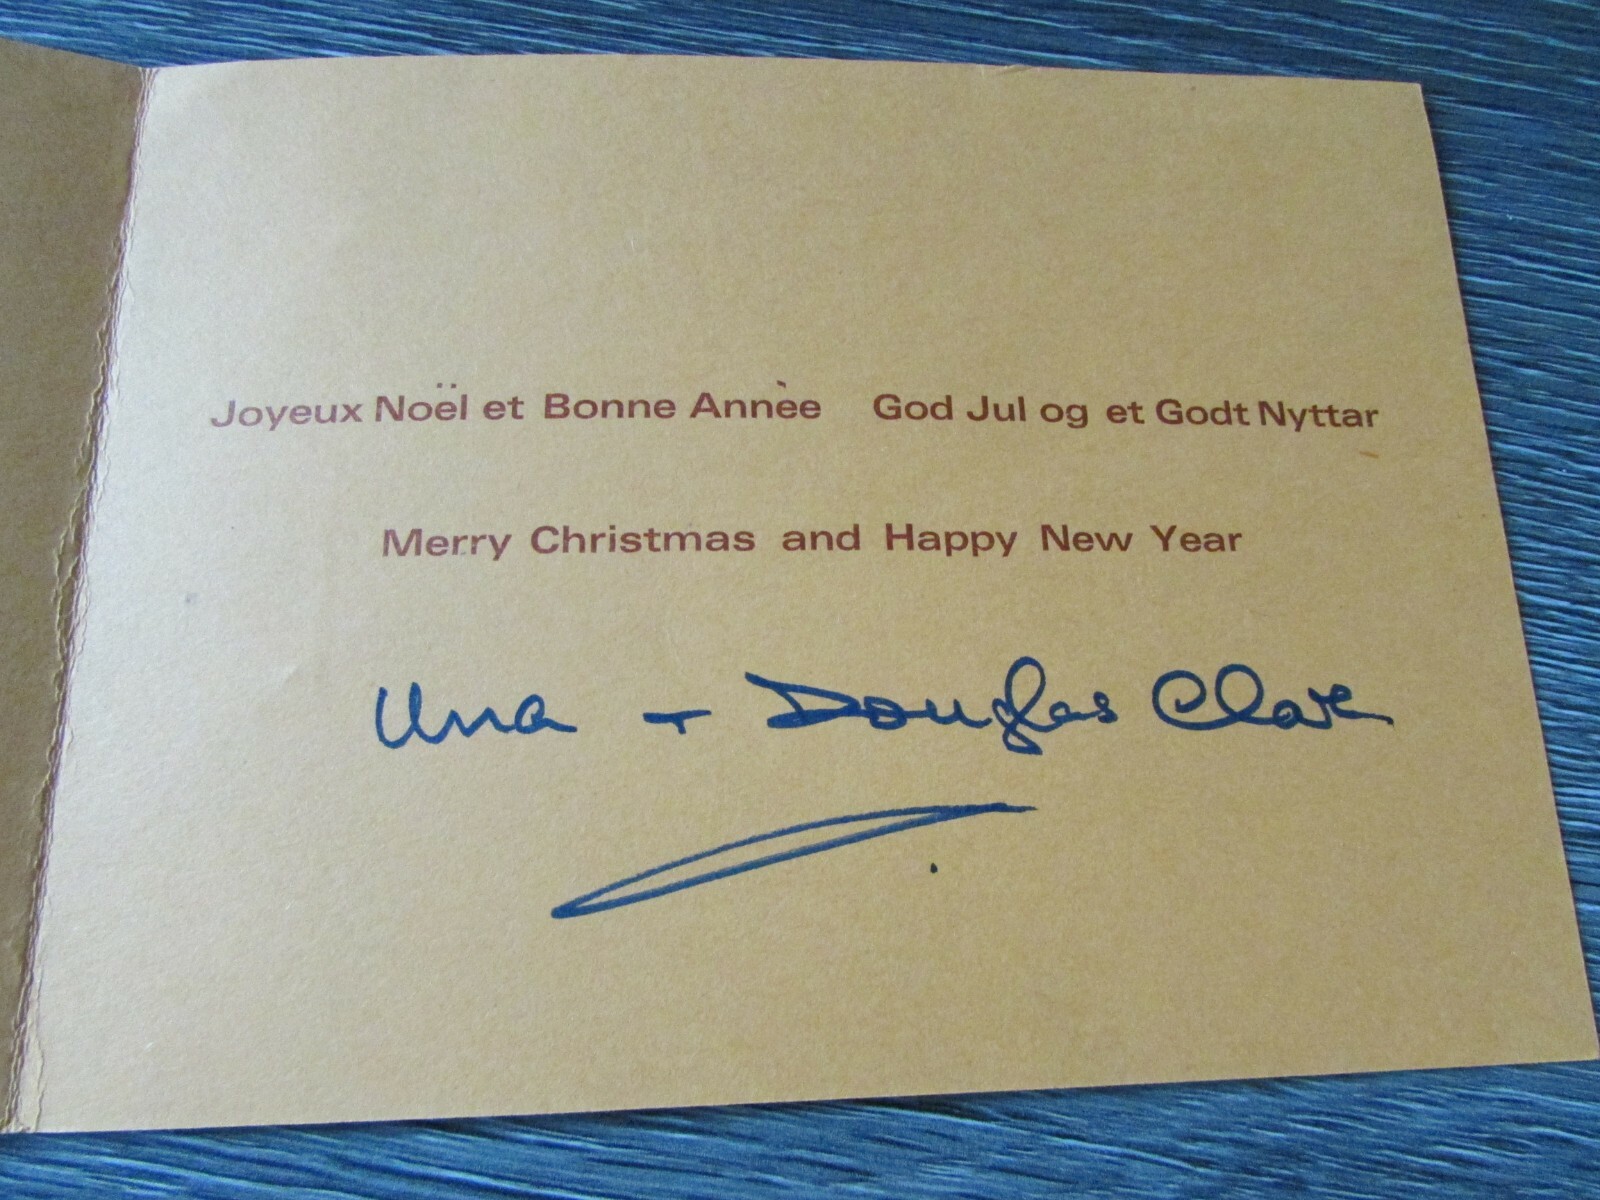 Joyeux Noël et Bonne Annèe God Jul og et Godt Nyttar
Merry Christmas and Happy New Year
Una + Douglas Clare